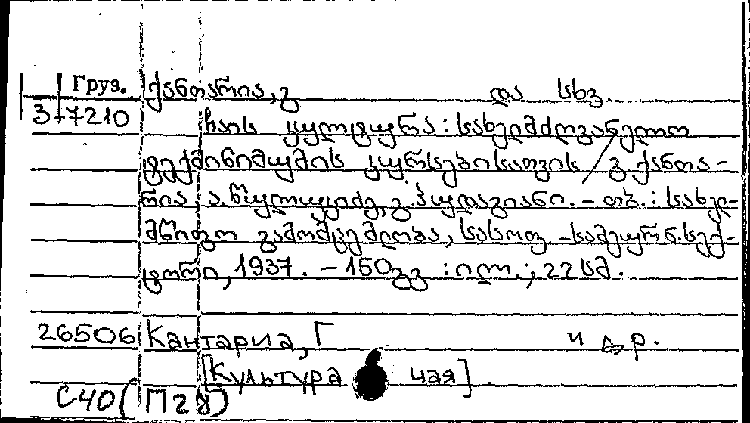 Груз. ქანთარია, გ და სხვ.
3-7210 ჩაის კულტურა : სახელმძღვანელო
ტექმინიმუმის კურსებისათვის / გ. ქანთა-
რია, ა. წულუკიძე, გ. - თბ. : სახელ-
მწიფო გამომცემლობა, სასოფ.-სამეურნ. სექ-
ტორი, 1937. - 150 გვ : ილ. ; 22 სმ.
26506 Кантариа, Г и др.
[Культура чая].
С40(П28)